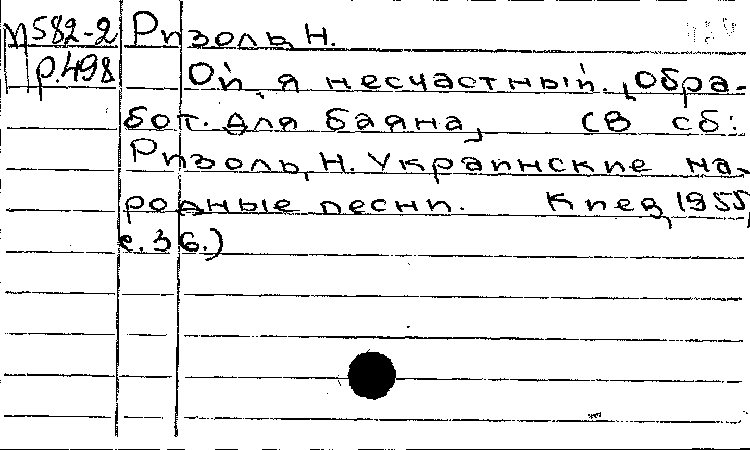 М582-2 Ризоль, Н.
р.498 Ой, я несчастный. Обра-
бот. для баяна, (В сб:
Ризоль, Н. Украинские на-
родные песни. Киев, 1955,
с.36.)